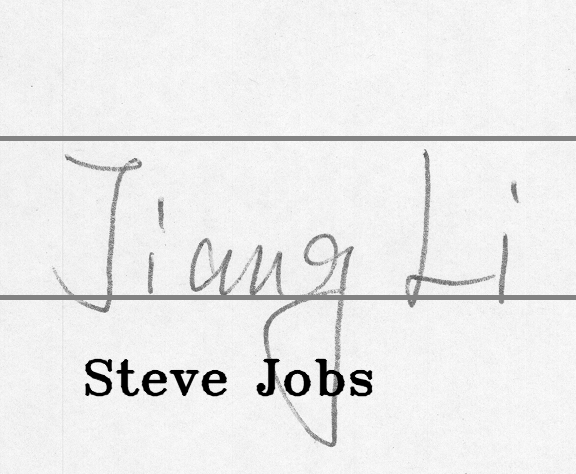 Jiang Li
Steve Jobs